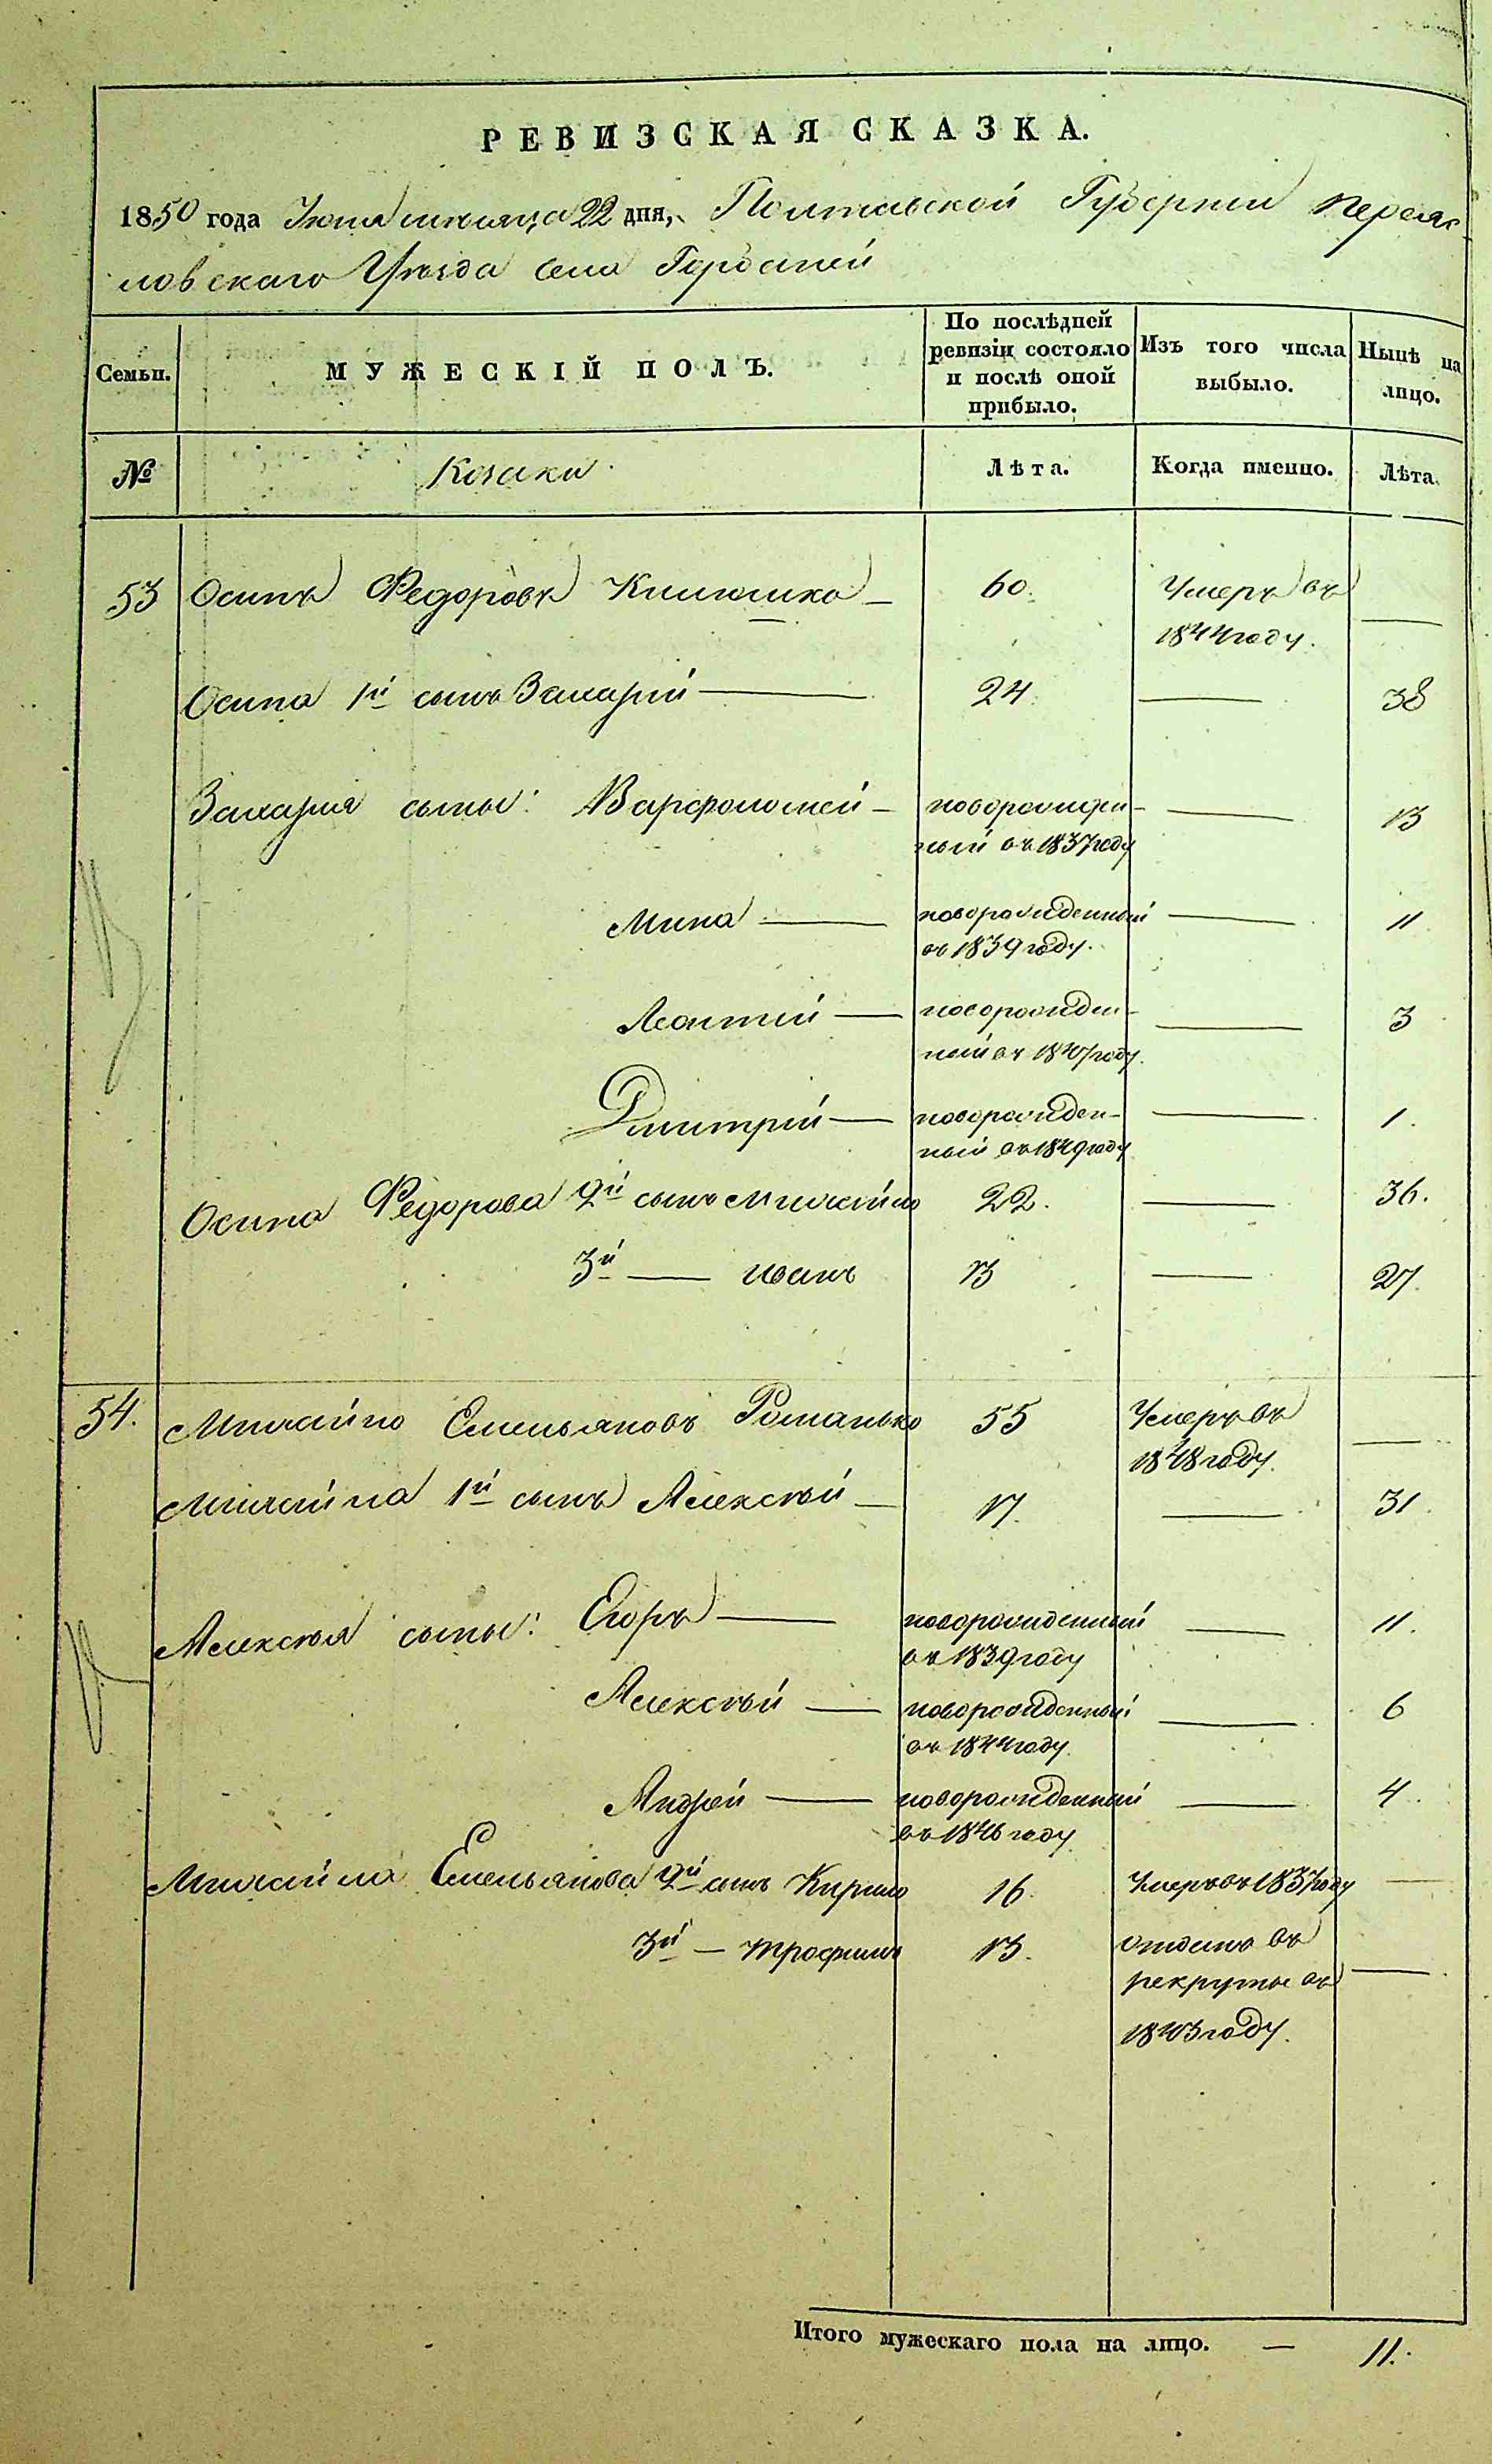 РЕВИЗСКАЯ СКАЗКА.
1850 года Іюня мѣсяца 22 дня, Полтавской Губерніи Переяс
ловскаго Уѣзда села Горбаней
Семьи.
МУЖЕСКІЙ ПОЛЪ.
По послѣдней ревизіи состояло и послѣ оной прибыло.
Изъ того числа выбыло.
Нынѣ на лицо.
№
Козаки
Лѣта.
Когда именно.
Лѣта.
53 Осипъ Федоровъ — 60. Умеръ въ —
1844 году.
Осипа 1й сынъ Захарій — 24. — 38
Захарія сыны: Варфоломей — новорожден- — 13
ный въ 1837 году
Мина — новорожденный — 11
въ 1839 году.
Леонтій — новорожден- — 3
ный въ 1847 году.
Дмитрій — новорожден- — 1.
ный въ 1849 году
Осипа Федорова 2й сынъ Михайло 22. — 36.
3й — Иванъ 13 — 27.
54. Михайло Емельяновъ Романько 55 Умеръ въ —
1848 году.
Михайла 1й сынъ Алексѣй — 17. — 31.
Алексѣя сыны: Егоръ — новорожденный — 11.
въ 1839 году
Алексѣй — новорожденный — 6
въ 1844 году.
Андрей — новорожденный — 4.
въ 1846 году.
Михайла Емельянова 2й сынъ Кирило 16. Умеръ въ 1837 году —
3й — Трофимъ 13. отданъ въ
рекруты въ —
1843 году.
Итого мужескаго пола на лицо. — 11.